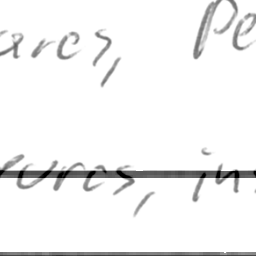 ares, Pe
eures, ins